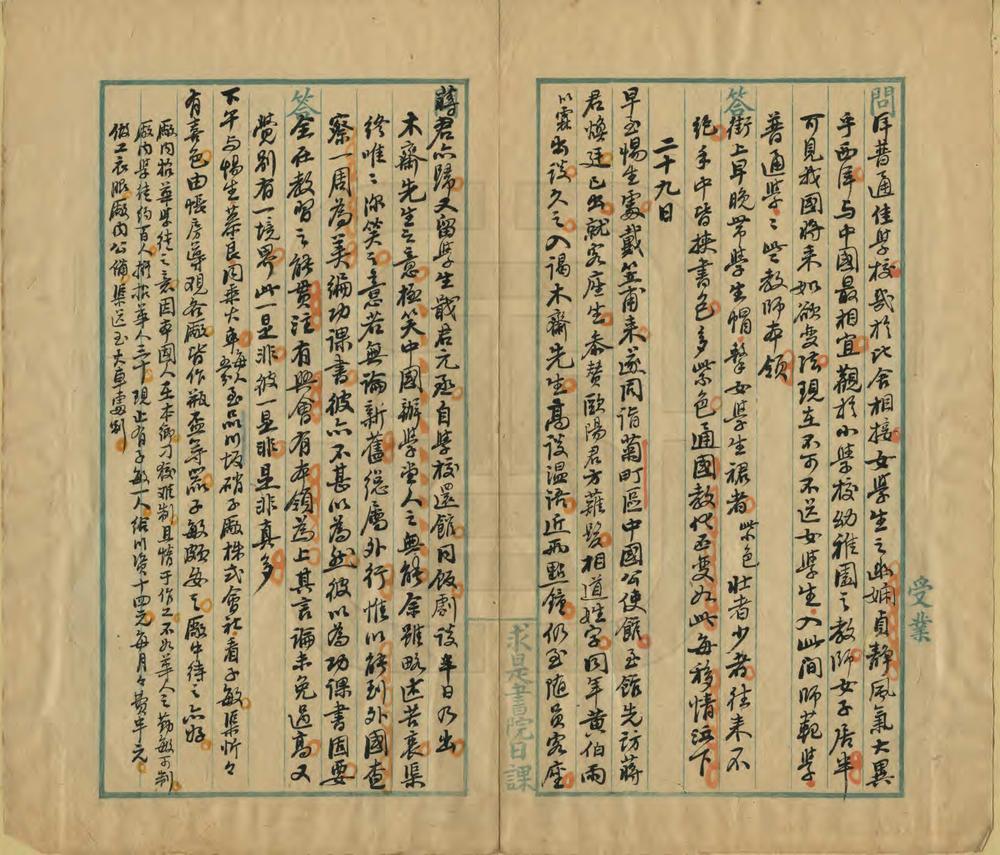 問
答
受業
求是書院日課
日普通佳學校我於此舍相接女學生之幽嫻貞靜風氣大異
乎西洋与中國最相宜觀於小學校幼稚園之教師女子居半
可見我國將来如欲变法現在不可不送女學生入此間師範學
普通學之些教師本領
街上早晚帶學生帽擎女學生裙者紫色壯者少者往来不
絕手中皆挾書包多紫色通國教化至要如此每移情
二十九日
早至惕生處戴笠甫来遂同詣菊町區中國公使館至館先訪蔣
君煥廷已出就客座生泰贊歐陽君方薙髮相道姓字同年黃伯雨
以霖出談久之入謁木齋先生高談温語近兩點鐘仍至随員客座
蔣君亦歸又留學生戢君元丞自學校還館同飯劇談半日乃出
木齋先生之意極笑中國辦學堂人之無能余雖略述苦衷渠
終唯唯冷笑之意若無論新舊總屬外行惟以能到外國查
察一周為美編功課書彼亦不甚以為然彼以為功課書固要
全在教習之能貫注有興會有本領為上其言論未免過高又
覺別有一境界此一是非彼一是非是非真多
下午与惕生慕良同乘火車每人至品川坂硝子廠株式會社看子敏渠忻々
有喜色由帳房導观各廠皆作瓶盃等器子敏頗安之廠中待之亦好
廠内招華學徒之意因本國人在本鄉刁狡难制且惰于作工不如華人之勤敏可制
廠内學徒約百人擬招華人三十現止有子敏一人給川資十四元每月々費半元
做工衣服廠内公備渠送至火車處别